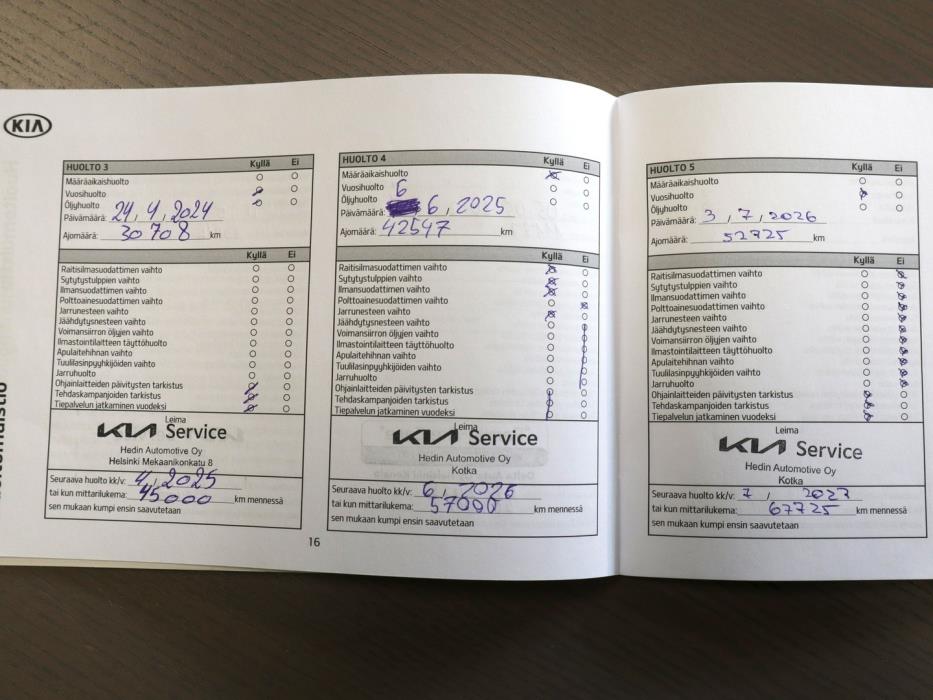 KIA
HUOLTO 3 Kyllä Ei
Määräaikaishuolto
Vuosihuolto
Öljyhuolto
Päivämäärä: 24, 4, 2024
Ajomäärä: 30708 km
Kyllä Ei
Raitisilmasuodattimen vaihto
Sytytystulppien vaihto
Ilmansuodattimen vaihto
Polttoainesuodattimen vaihto
Jarrunesteen vaihto
Jäähdytysnesteen vaihto
Voimansiirron öljyjen vaihto
Ilmastointilaitteen täyttöhuolto
Apulaitehihnan vaihto
Tuulilasinpyyhkijöiden vaihto
Jarruhuolto
Ohjainlaitteiden päivitysten tarkistus
Tehdaskampanjoiden tarkistus
Tiepalvelun jatkaminen vuodeksi
Leima
KIA Service
Hedin Automotive Oy
Helsinki Mekaanikonkatu 8
Seuraava huolto kk/v: 4, 2025
tai kun mittarilukema: 45000 km mennessä
sen mukaan kumpi ensin saavutetaan
16
HUOLTO 4 Kyllä Ei
Määräaikaishuolto
Vuosihuolto
Öljyhuolto 6
Päivämäärä: 6, 2025
Ajomäärä: 42547 km
Kyllä Ei
Raitisilmasuodattimen vaihto
Sytytystulppien vaihto
Ilmansuodattimen vaihto
Polttoainesuodattimen vaihto
Jarrunesteen vaihto
Jäähdytysnesteen vaihto
Voimansiirron öljyjen vaihto
Ilmastointilaitteen täyttöhuolto
Apulaitehihnan vaihto
Tuulilasinpyyhkijöiden vaihto
Jarruhuolto
Ohjainlaitteiden päivitysten tarkistus
Tehdaskampanjoiden tarkistus
Tiepalvelun jatkaminen vuodeksi
Leima
KIA Service
Hedin Automotive Oy
Kotka
Seuraava huolto kk/v: 6, 2026
tai kun mittarilukema: 57000 km mennessä
sen mukaan kumpi ensin saavutetaan
HUOLTO 5 Kyllä Ei
Määräaikaishuolto
Vuosihuolto
Öljyhuolto
Päivämäärä: 3, 7, 2026
Ajomäärä: 52725 km
Kyllä Ei
Raitisilmasuodattimen vaihto
Sytytystulppien vaihto
Ilmansuodattimen vaihto
Polttoainesuodattimen vaihto
Jarrunesteen vaihto
Jäähdytysnesteen vaihto
Voimansiirron öljyjen vaihto
Ilmastointilaitteen täyttöhuolto
Apulaitehihnan vaihto
Tuulilasinpyyhkijöiden vaihto
Jarruhuolto
Ohjainlaitteiden päivitysten tarkistus
Tehdaskampanjoiden tarkistus
Tiepalvelun jatkaminen vuodeksi
Leima
KIA Service
Hedin Automotive Oy
Kotka
Seuraava huolto kk/v: 7, 2027
tai kun mittarilukema: 67725 km mennessä
sen mukaan kumpi ensin saavutetaan